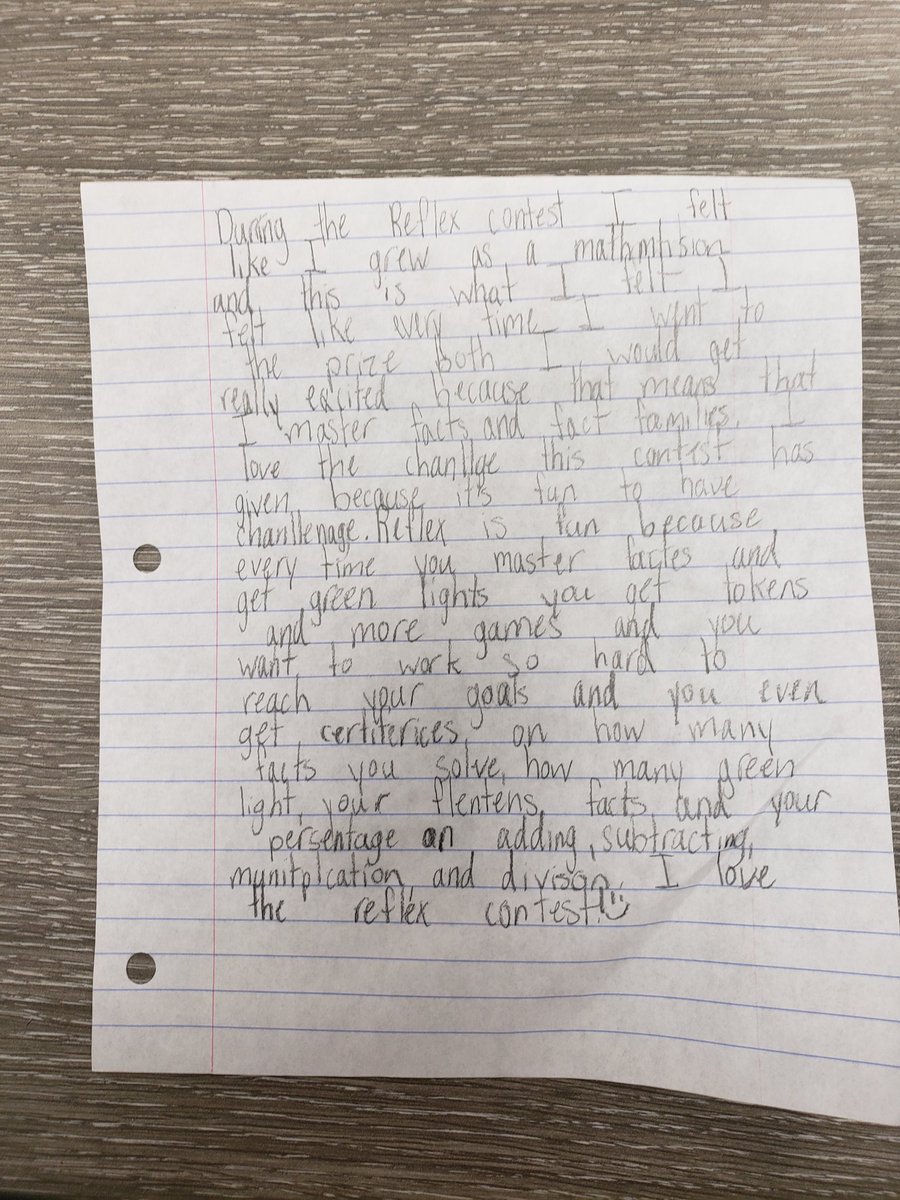 During the Reflex contest I felt
like I grew as a mathmhision
and this is what I felt I
felt like every time I went to
the prize both I would get
really excited because that means that
I master facts and fact families. I
love the chanllge this contest has
given because it's fun to have
chanllenage. Reflex is fun because
every time you master factes and
get green lights you get tokens
and more games and you
want to work so hard to
reach your goals and you even
get certiferices on how many
facts you solve, how many green
light, your flentens facts and your
persentage on adding, subtracting,
munitplcation, and divison. I love
the reflex contest!